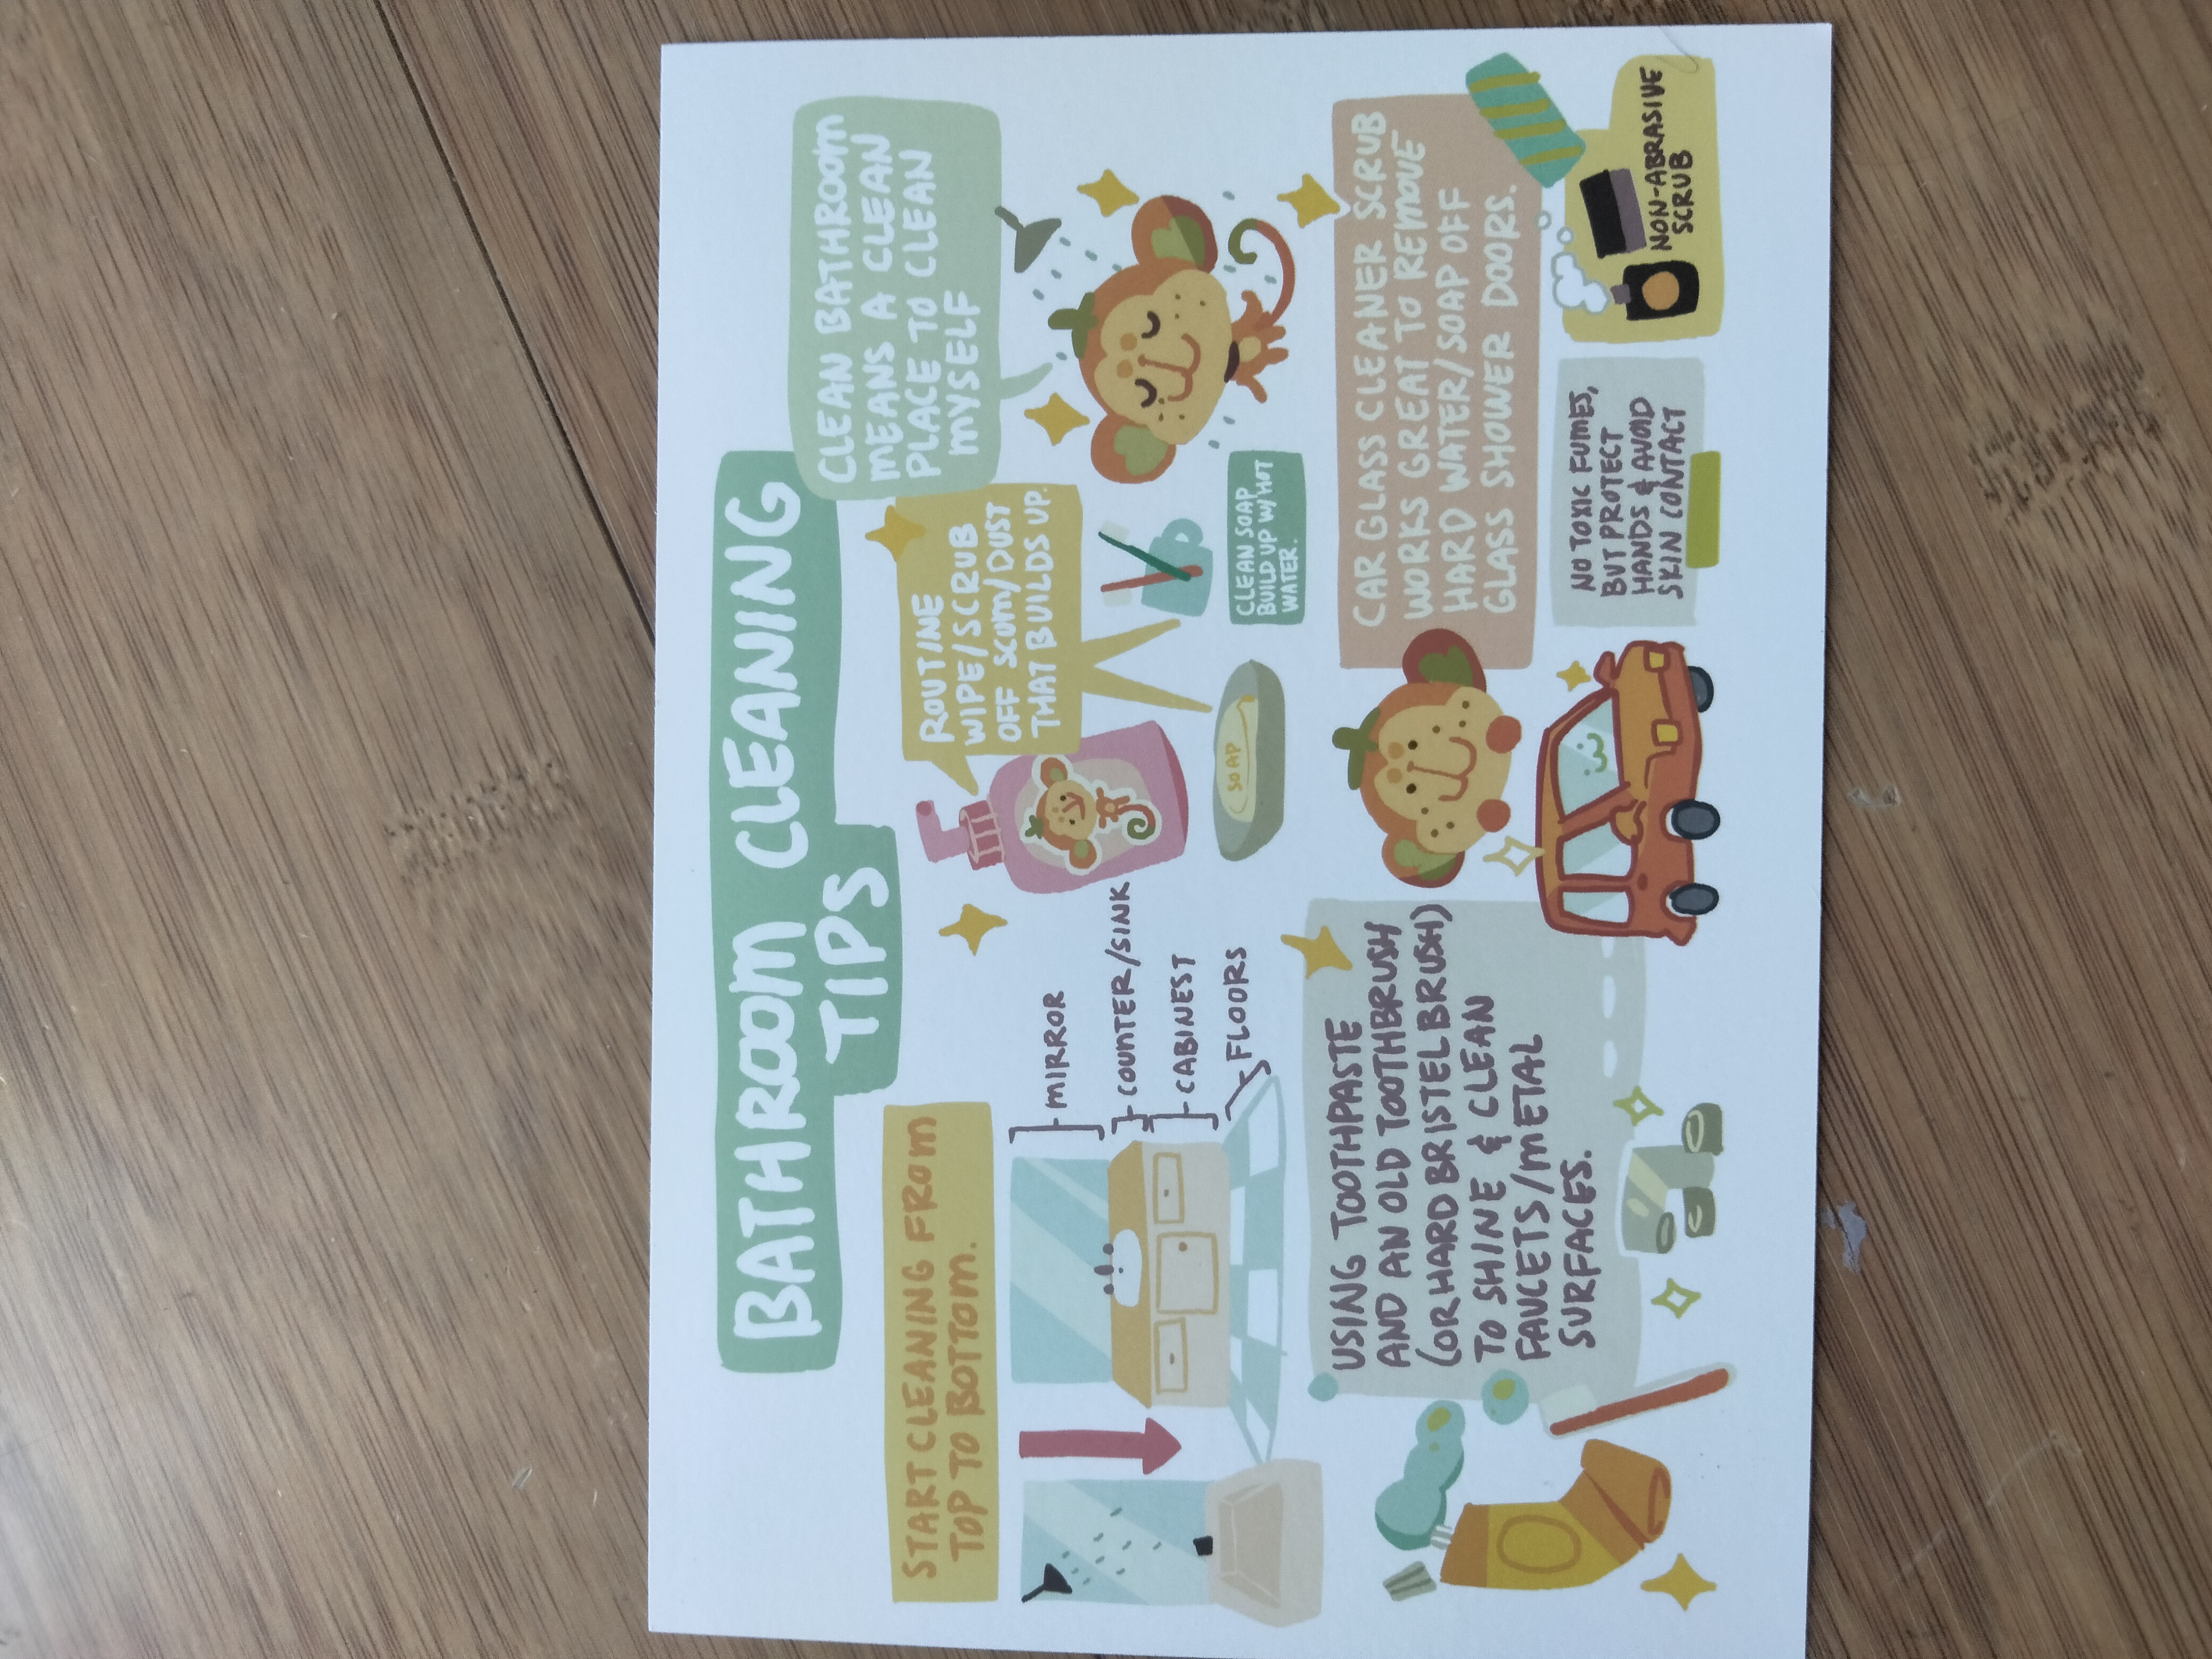 BATHROOM CLEANING
TIPS
START CLEANING FROM
TOP TO BOTTOM.
MIRROR
COUNTER/SINK
CABINEST
FLOORS
ROUTINE
WIPE/SCRUB
OFF SCUM/DUST
THAT BUILDS UP.
SOAP
CLEAN SOAP
BUILD UP W/HOT
WATER.
CLEAN BATHROOM
MEANS A CLEAN
PLACE TO CLEAN
MYSELF
USING TOOTHPASTE
AND AN OLD TOOTHBRUSH
(OR HARD BRISTEL BRUSH)
TO SHINE & CLEAN
FAUCETS/METAL
SURFACES.
CAR GLASS CLEANER SCRUB
WORKS GREAT TO REMOVE
HARD WATER/SOAP OFF
GLASS SHOWER DOORS.
NO TOXIC FUMES,
BUT PROTECT
HANDS & AVOID
SKIN CONTACT
NON-ABRASIVE
SCRUB